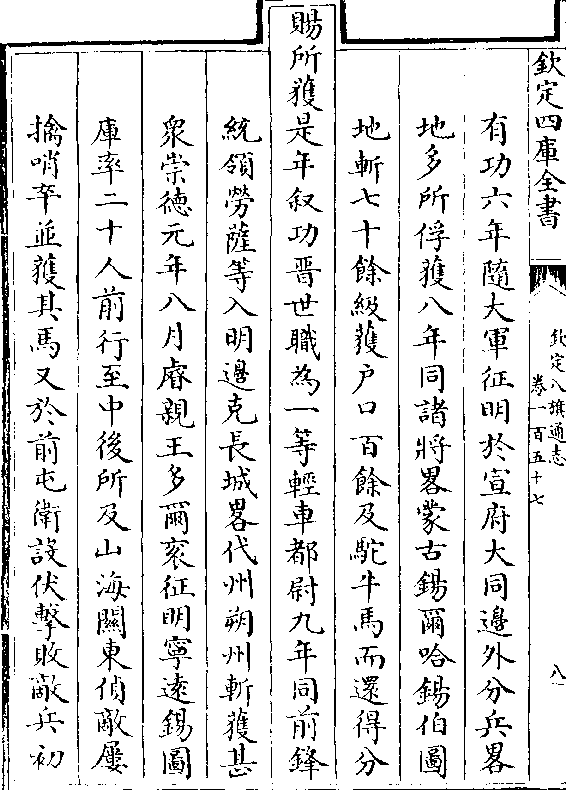 欽定四庫全書
欽定八旗通志
卷一百五十七
八
有功六年隨大軍征明於宣府大同邊外分兵畧
地多所俘獲八年同諸將畧蒙古錫爾哈錫伯圖
地斬七十餘級獲户口百餘及駝牛馬而還得分
賜所獲是年叙功晋世職為一等輕車都尉九年同前鋒
統領勞薩等入明邊克長城畧代州朔州斬獲甚
衆崇德元年八月睿親王多爾衮征明寧遠錫圖
庫率二十人前行至中後所及山海關東偵敵屢
擒哨卒並獲其馬又於前屯衛設伏擊敗敵兵初